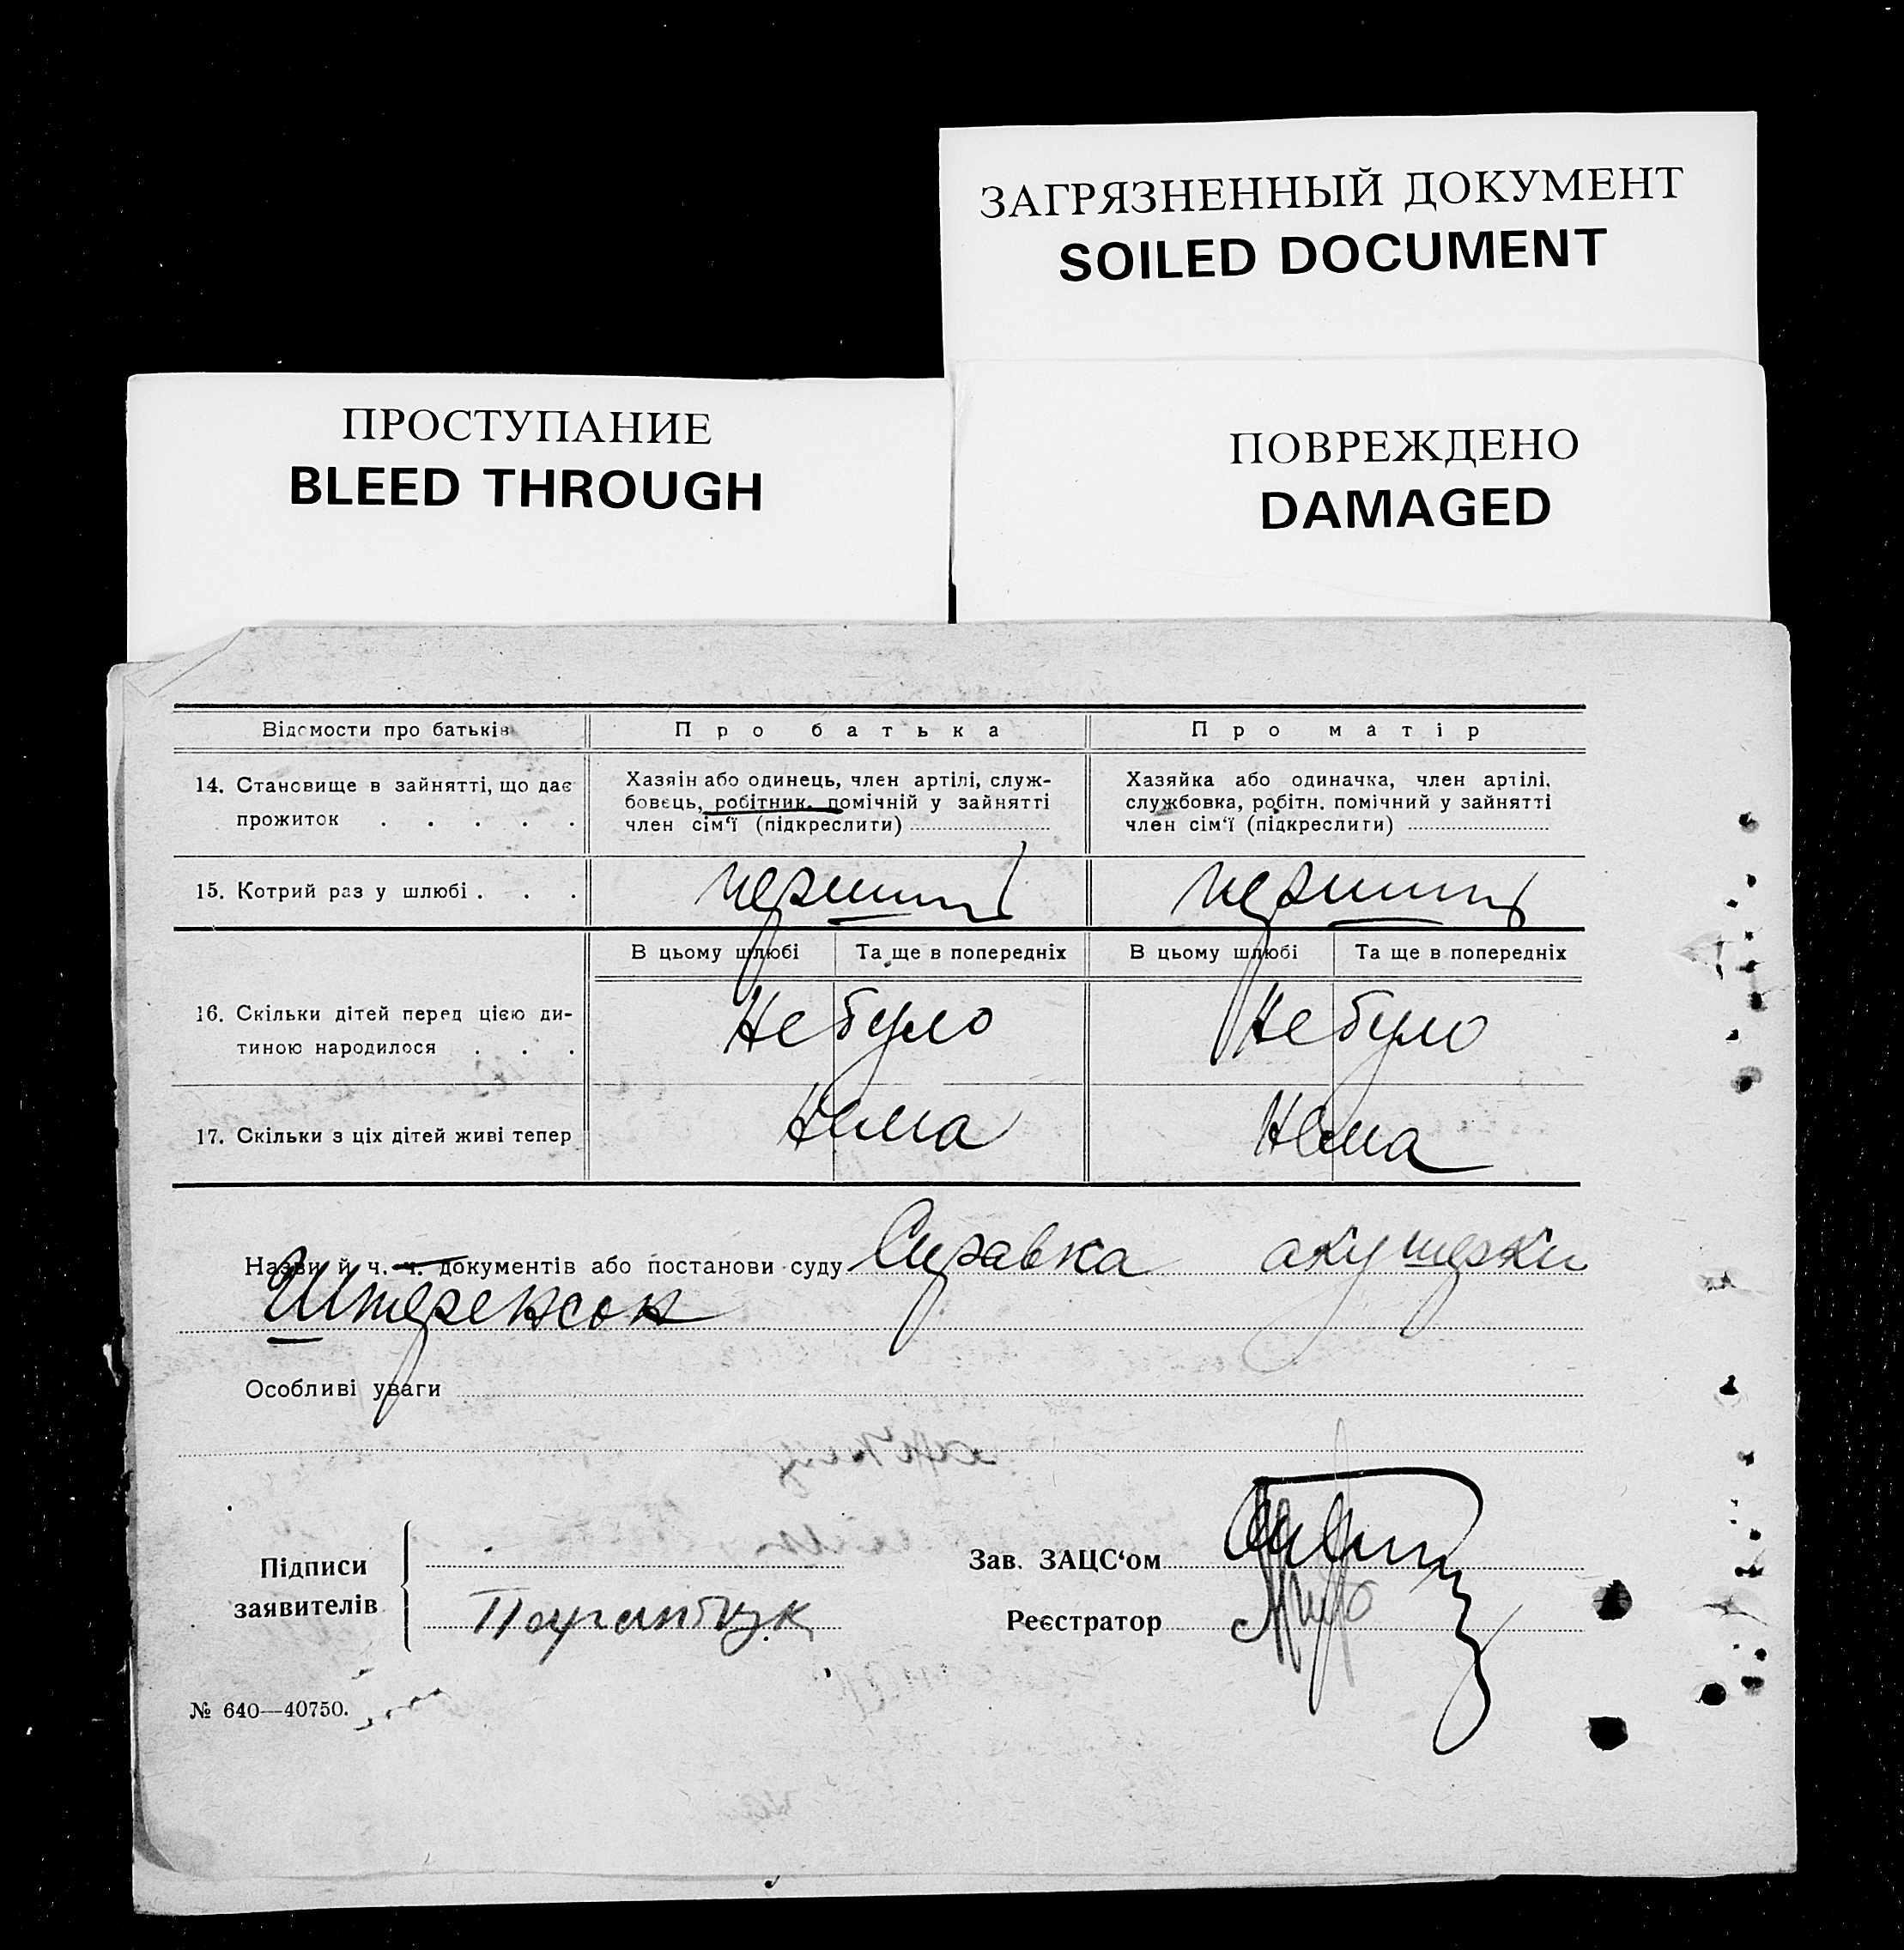 ЗАГРЯЗНЕННЫЙ ДОКУМЕНТ
SOILED DOCUMENT
ПРОСТУПАНИЕ
BLEED THROUGH
ПОВРЕЖДЕНО
DAMAGED
Відомости про батьків
Про батька
Про матір
14. Становище в зайнятті, що дає
прожиток . . . . .
Хазяін або одинець, член артілі, служ-
бовець, робітник, помічній у зайнятті
член сім‘ї (підкреслити)
Хазяйка або одиначка, член артілі,
службовка, робітн. помічний у зайнятті
член сім‘ї (підкреслити)
15. Котрий раз у шлюбі . . .
перший
перший
В цьому шлюбі
Та ще в попередніх
В цьому шлюбі
Та ще в попередніх
16. Скільки дітей перед цією ди-
тиною народилося . . .
Не було
Не було
17. Скільки з ціх дітей живі тепер
Нема
Нема
Назви й ч. ч. документів або постанови суду Справка акушерки
Штеренсон
Особливі уваги
Підписи
заявителів
Зав. ЗАЦС‘ом
Реєстратор
№ 640—40750.